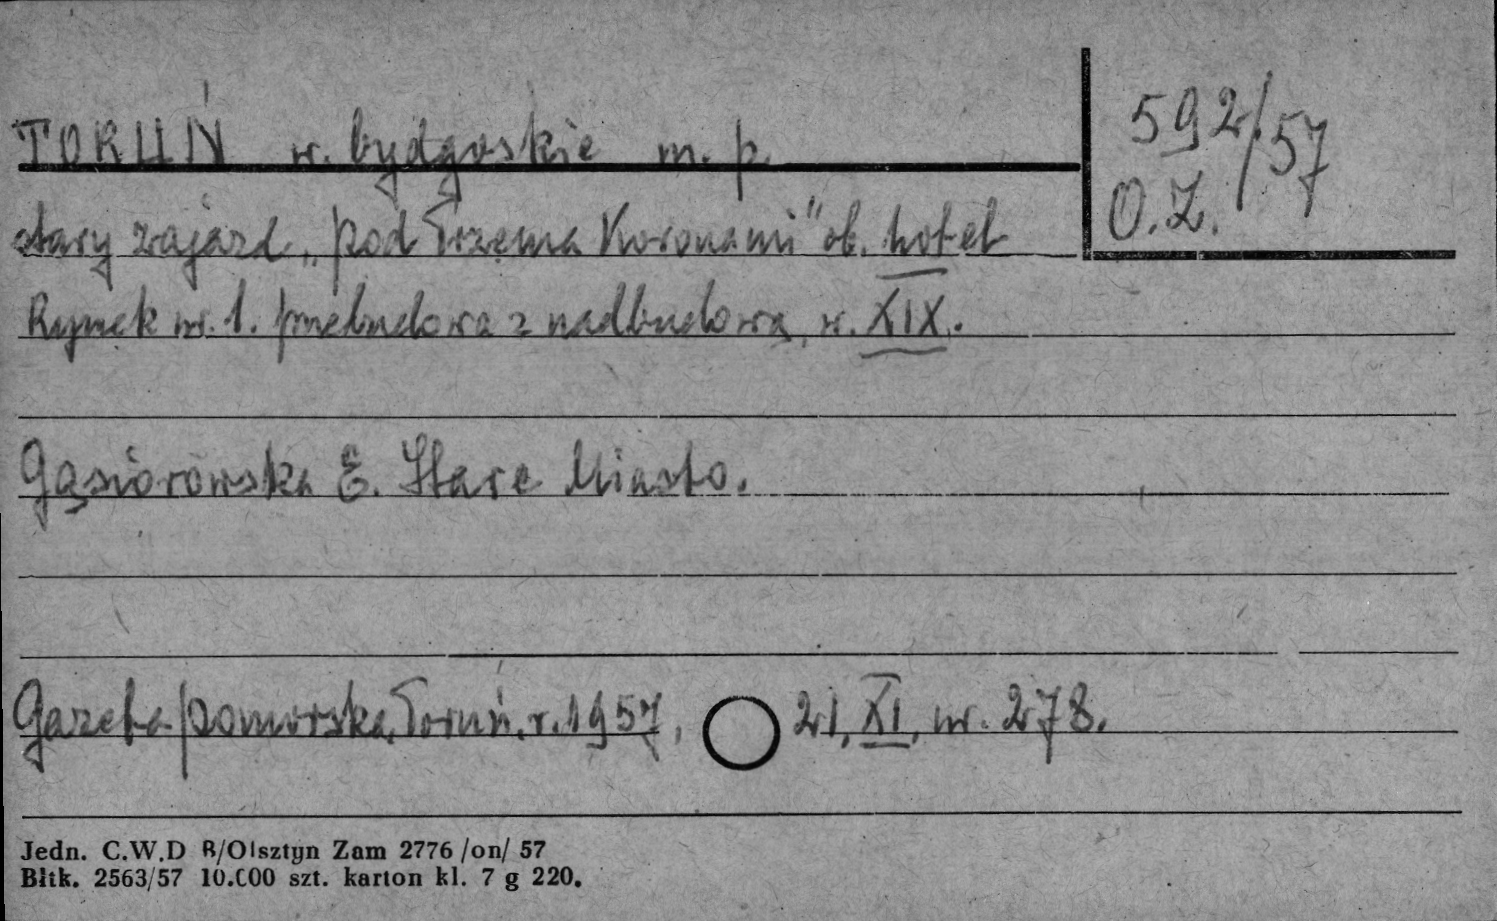 TORUŃ w. bydgoskie m. p.
592/57
O.Z.
stary zajazd „pod Trzema Koronami" ob. hotel
Rynek nr. 1. przebudowa z nadbudową, w. XIX.
Gąsiorowska E. Stare Miasto.
Gazeta pomorska, Toruń, r. 1957, 21, XI, nr. 278.
Jedn. C.W.D R/Olsztyn Zam 2776 /on/ 57
Błtk. 2563/57 10.000 szt. karton kl. 7 g 220.